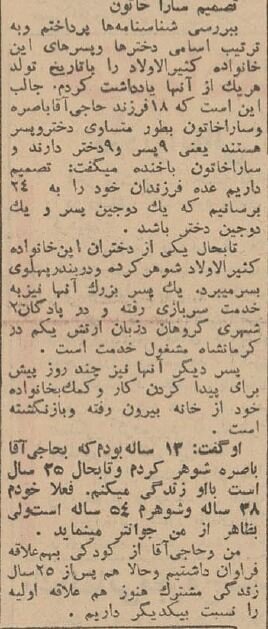 تصمیم سارا خاتون
ببررسی شناسنامه‌ها پرداختم وبه
ترتیب اسامی دخترها وپسرهای این
خانواده کثیرالاولاد را باتاریخ تولد
هریك از آنها یادداشت کردم. جالب
این است که ۱۸فرزند حاجی‌آقاباصره
وساراخاتون بطور متساوی دختروپسر
هستند یعنی ۹پسر و۹دختر دارند و
ساراخاتون باخنده میگفت: تصمیم
داریم عده فرزندان خود را به ۲۴
برسانیم که یك دوجین پسر و یك
دوجین دختر باشد .
تابحال یکی از دختران این‌خانواده
کثیرالاولاد شوهرکرده ودربندرپهلوی
بسرمیبرد. یك پسر بزرك آنها نیزبه
خدمت سربازی رفته و در پادگان۲
شهری گروهان دژبان ارتش یکم در
کرمانشاه مشغول خدمت است .
پسر دیگر آنها نیز چند روز پیش
برای پیدا کردن کار و کمك‌بخانواده
خود از خانه بیرون رفته وبازنگشته
است .
اوگفت: ۱۳ ساله‌بودم‌که بحاجی‌آقا
باصره شوهر کردم وتابحال ۲۵ سال
است بااو زندگی میکنم. فعلا خودم
۳۸ ساله وشوهرم ۵۴ ساله است‌ولی
بظاهر از من جوانتر مینماید .
من وحاجی‌آقا از کودکی بهم‌علاقه
فراوان داشتیم وحالا هم پس‌از ۲۵سال
زندگی مشترك هنوز هم علاقه اولیه
را نسبت بیکدیگر داریم .